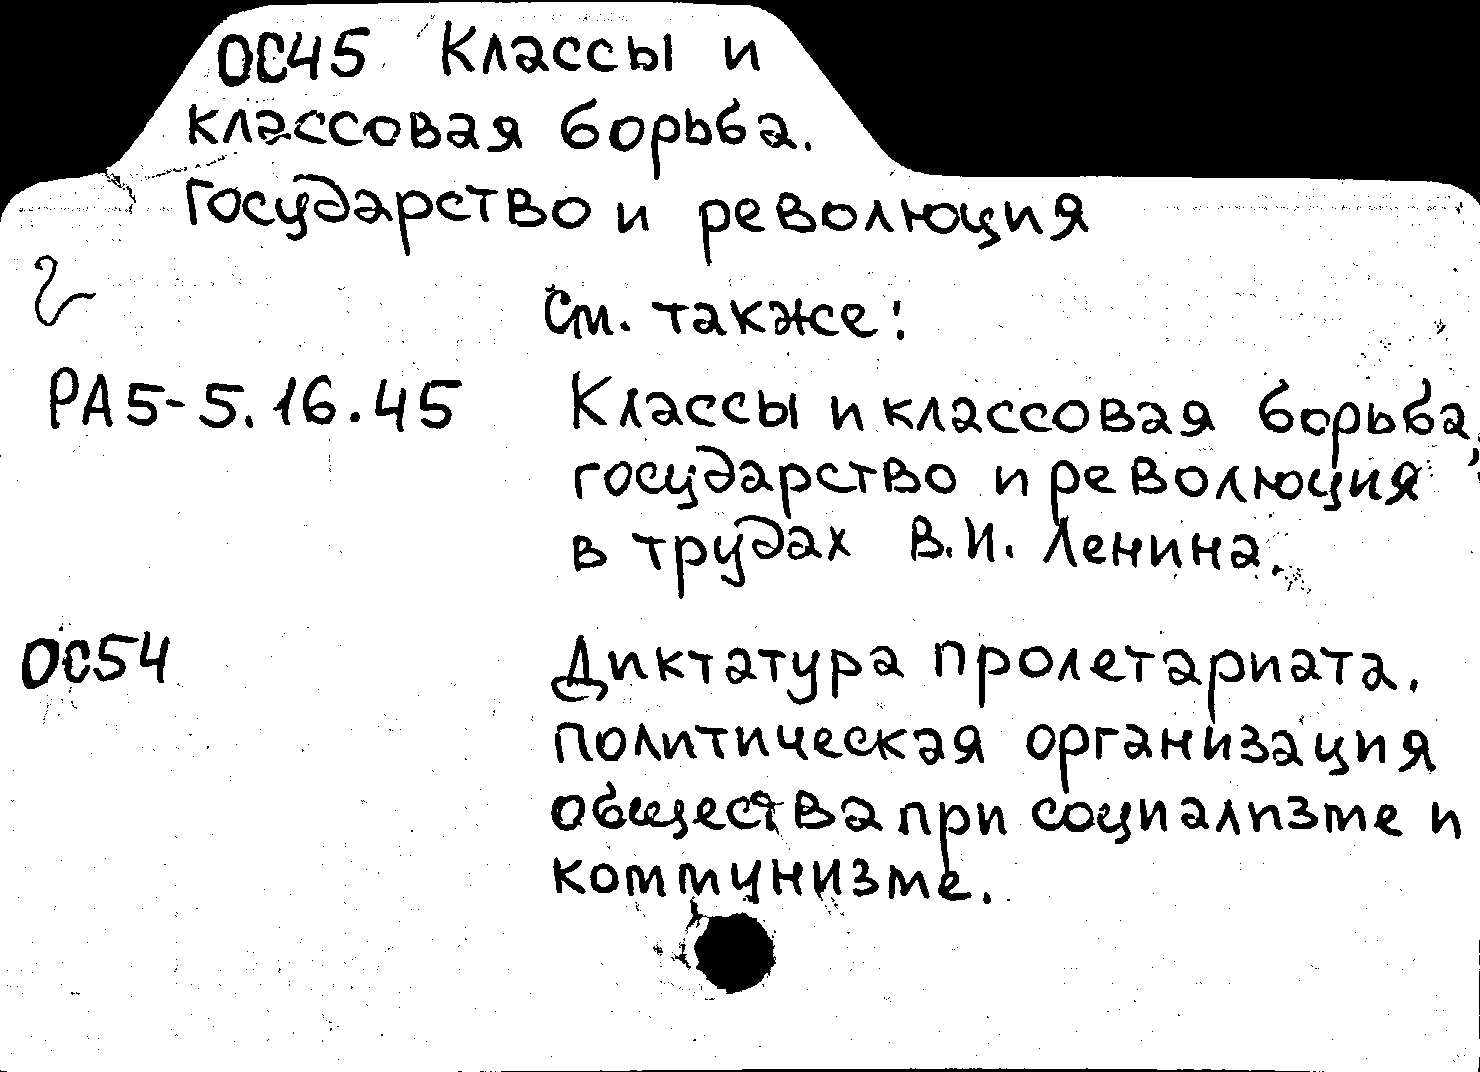 ОС45 Классы и
классовая борьба.
Государство и революция
См. также:
РА5-5.16.45 Классы и классовая борьба,
государство и революция
в трудах В.И. Ленина.
ОС54 Диктатура пролетариата.
Политическая организация
общества при социализме и
коммунизме.